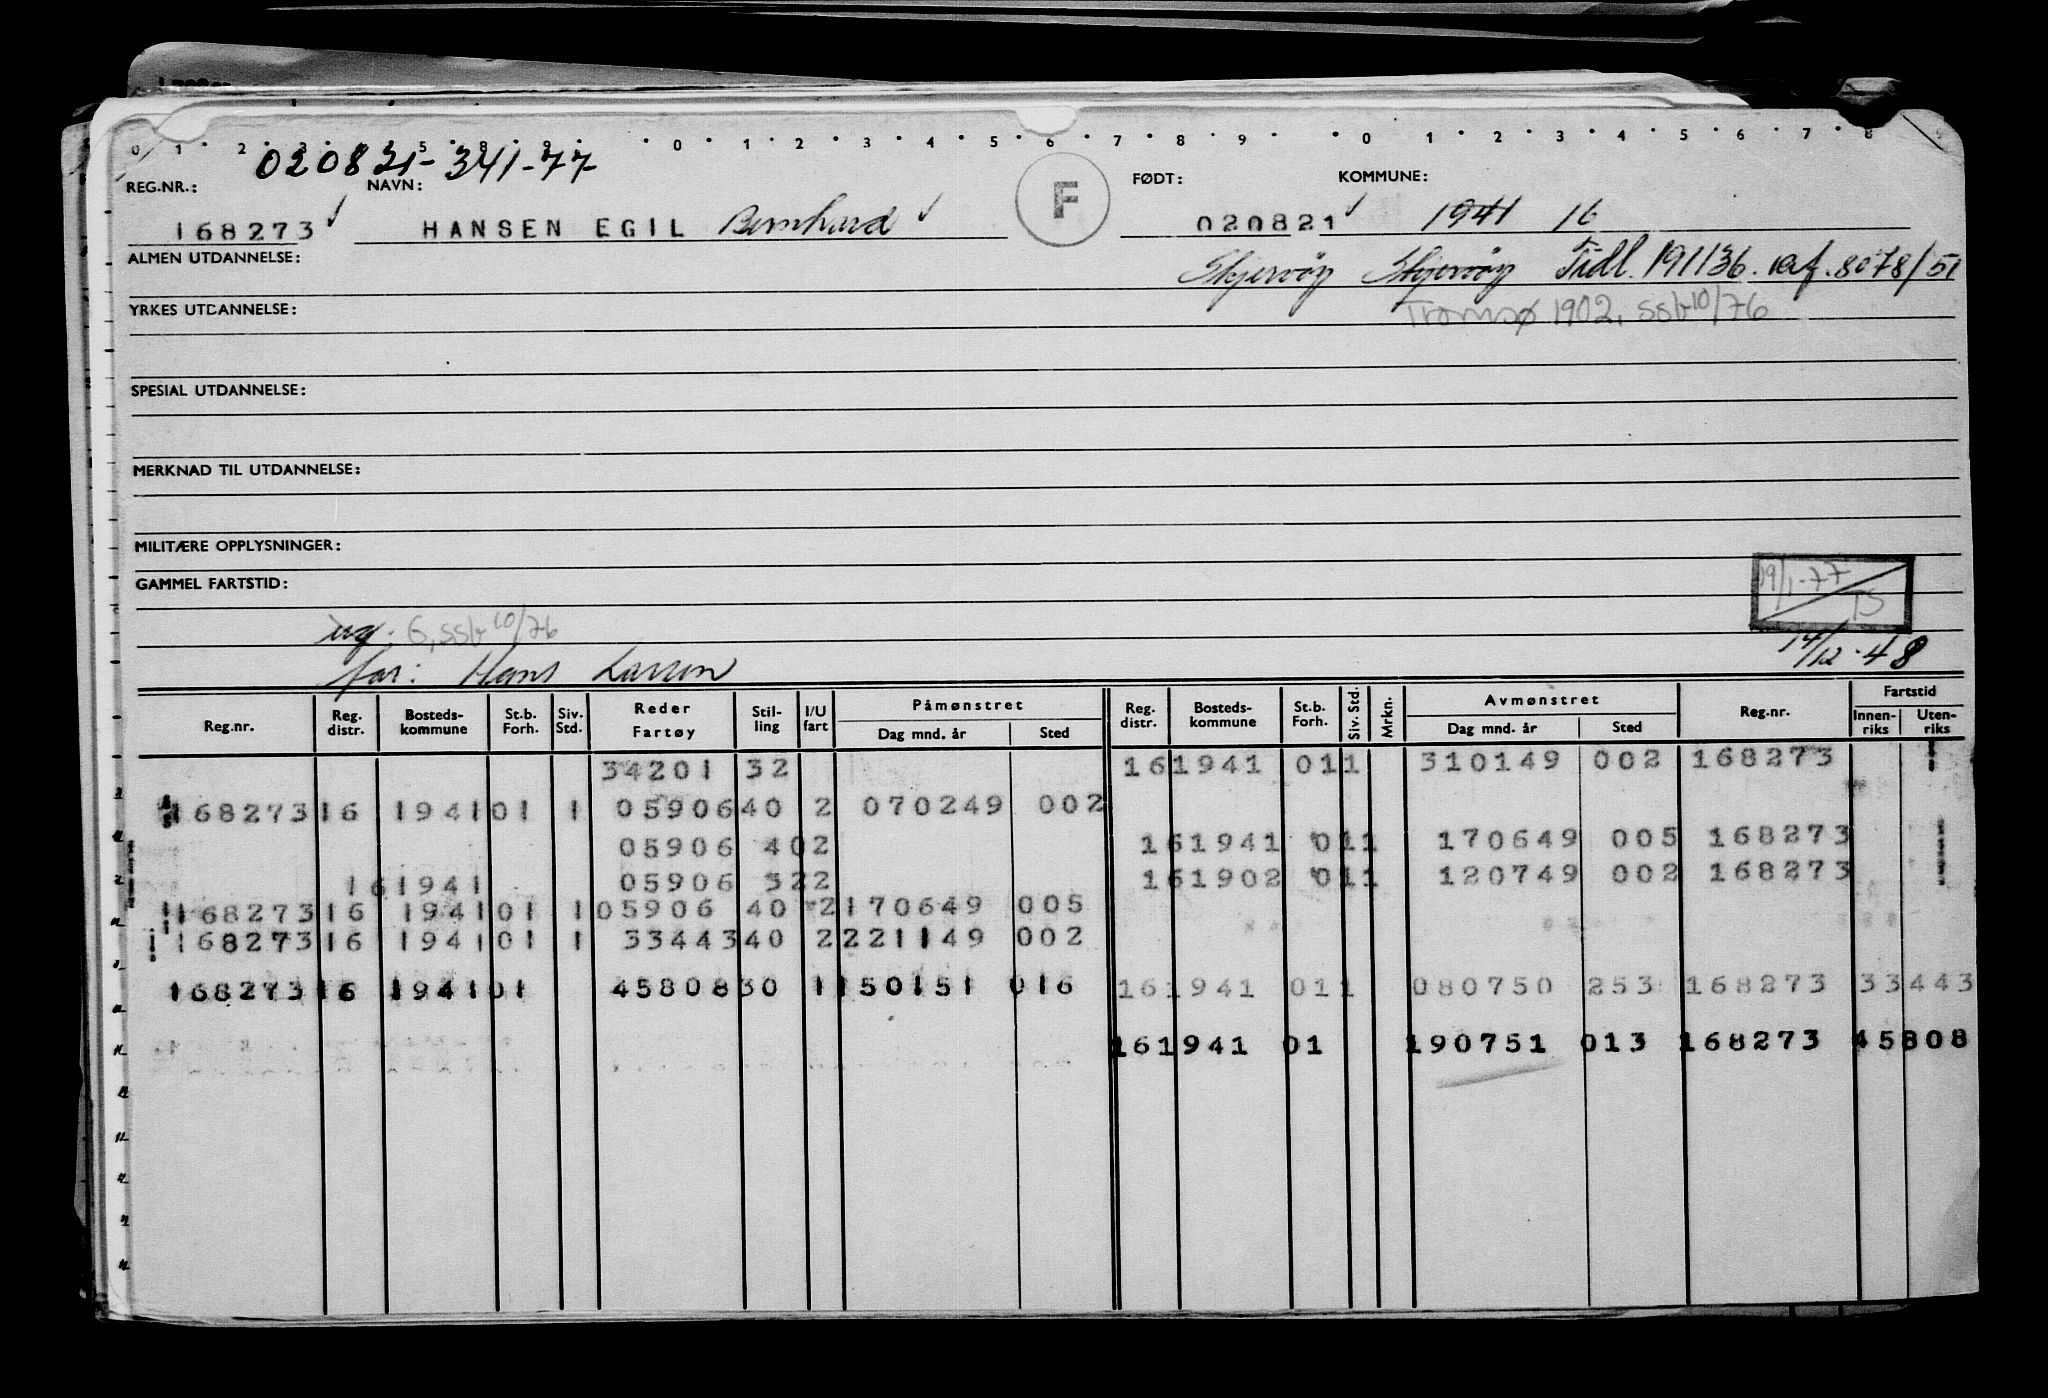 0 1 2 3 4 5 8 9 0 1 2 3 4 5 6 7 8 9 0 1 2 3 4 5 6 7 8
020821-341-77
REG.NR.: NAVN: F FØDT: KOMMUNE:
168273 HANSEN EGIL Bernhard 020821 1941 16
ALMEN UTDANNELSE: Skjervøy Skjervøy Tidl. 191136. 8078/51
YRKES UTDANNELSE: Tromsø 1902, ssb 10/76
SPESIAL UTDANNELSE:
MERKNAD TIL UTDANNELSE:
MILITÆRE OPPLYSNINGER:
GAMMEL FARTSTID: 19/1-77 TS
ug. G, ssb 10/76 14/12-48
far: Hans Larsen
Reg.nr. Reg. distr. Bosteds-kommune St.b. Forh. Siv. Std. Reder Fartøy Stil-ling I/U fart Påmønstret Dag mnd. år Sted Reg. distr. Bosteds-kommune St.b. Forh. Siv. Std. Mrkn. Avmønstret Dag mnd. år Sted Reg.nr. Fartstid Innen-riks Uten-riks
34201 32 161941 011 310149 002 168273
168273 16 1941 01 1 05906 40 2 070249 002
05906 402 161941 011 170649 005 168273
161941 05906 322 161902 011 120749 002 168273
168273 16 1941 01 1 05906 40 2 170649 005
168273 16 1941 01 1 33443 40 2 221149 002
168273 16 1941 01 45808 30 1 150151 016 161941 011 080750 253 168273 33443
161941 01 190751 013 168273 45808